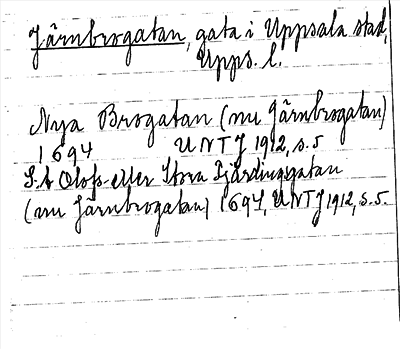 Järnbrogatan, gata i Uppsala stad,
Upps. l.
Nya Brogatan (nu Järnbrogatan)
1694 UNTJ 1912, s. 5
S:t Olofs- eller Stora Fjärdingsgatan
(nu Järnbrogatan) 1694, UNTJ 1912, s. 5.